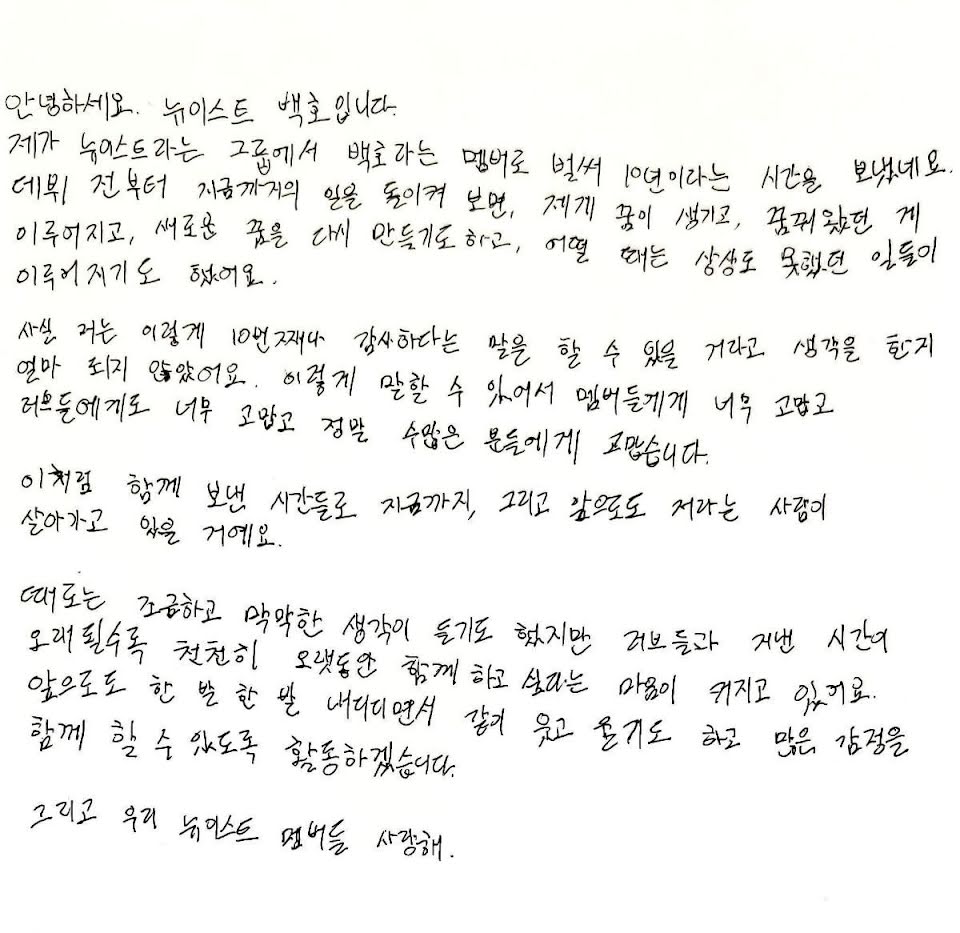 안녕하세요. 뉴이스트 백호입니다.
제가 뉴이스트라는 그룹에서 백호라는 멤버로 벌써 10년이라는 시간을 보냈네요.
데뷔 전부터 지금까지의 일을 돌이켜 보면, 제게 꿈이 생기고, 꿈꿔왔던 게
이루어지고, 새로운 꿈을 다시 만들기도 하고, 어떨 때는 상상도 못했던 일들이
이루어지기도 했어요.
사실 저는 이렇게 10번째나 감사하다는 말을 할 수 있을 거라고 생각을 한지
얼마 되지 않았어요. 이렇게 말할 수 있어서 멤버들게게 너무 고맙고
러브들에게도 너무 고맙고 정말 수많은 분들에게 고맙습니다.
이처럼 함께 보낸 시간들로 지금까지, 그리고 앞으로도 저라는 사람이
살아가고 있을 거예요.
때로는 조급하고 막막한 생각이 들기도 했지만 러브들과 지낸 시간이
오래될수록 천천히 오랫동안 함께 하고 싶다는 마음이 커지고 있어요.
앞으로도 한 발 한 발 내디디면서 같이 웃고 울기도 하고 많은 감정을
함께 할 수 있도록 활동하겠습니다.
그리고 우리 뉴이스트 멤버들 사랑해.